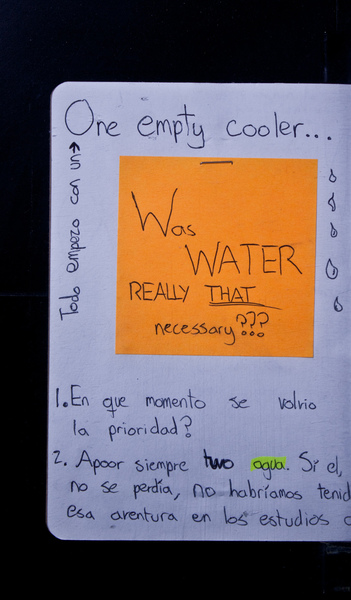 One empty cooler...
Todo empezo con un →
Was
WATER
REALLY THAT
necessary???
1. En que momento se volvio
la prioridad?
2. Apoor siempre two agua. Si el,
no se perdía, no habríamos tenid
esa aventura en los estudios